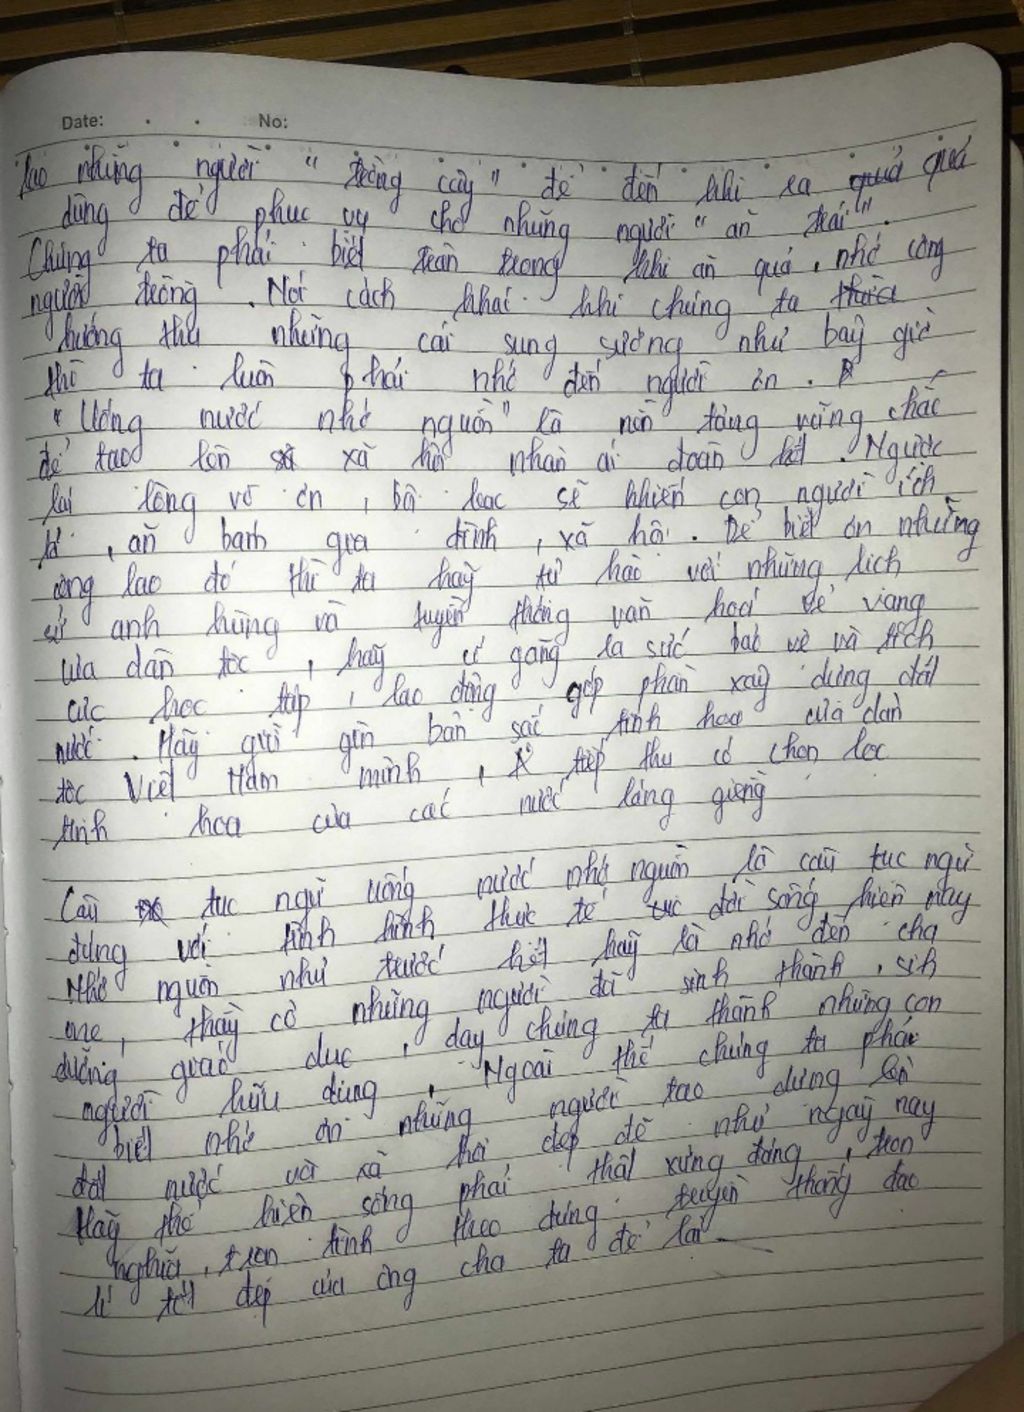 Date: . . No:
lao những người " trồng cây" để đến khi ra quả quá
dùng để phục vụ cho những người " ăn trái ".
Chúng ta phải biết trân trọng khi ăn quả, nhớ công
người trồng. Nói cách khác khi chúng ta
hưởng thụ những cái sung sướng như bây giờ
thì ta luôn phải nhớ đến người ơn.
" Uống nước nhớ nguồn" là nền tảng vững chắc
để tạo lên xã hội nhân ái đoàn kết. Ngược
lại lòng vô ơn, bội bạc sẽ khiến con người ích
kỉ, ăn bám gia đình, xã hội. Để biết ơn những
công lao đó thì ta hãy tự hào với những lịch
sử anh hùng và truyền thống văn hoá vẻ vang
của dân tộc, hãy cố gắng ra sức bảo vệ và tích
cực học tập, lao động góp phần xây dựng đất
nước. Hãy giữ gìn bản sắc tinh hoa của dân
tộc Việt Nam mình, tiếp thu có chọn lọc
tinh hoa của các nước láng giềng
Câu tục ngữ uống nước nhớ nguồn là câu tục ngữ
đúng với tình hình thực tế đời sống hiện nay
Nhớ nguồn như trước hết hãy là nhớ đến cha
mẹ, thầy cô những người đã sinh thành, sih
dưỡng giáo dục, dạy chúng ta thành những con
người hữu dụng, Ngoài thế chúng ta phải
biết nhớ ơn những người tạo dựng lên
đất nước và xã hội đẹp đẽ như ngày nay
Hãy thể hiện sống phải thật xứng đáng, tron
nghĩa, tron tình theo đúng truyền thống đạo
lí tốt đẹp của ông cha ta để lại.